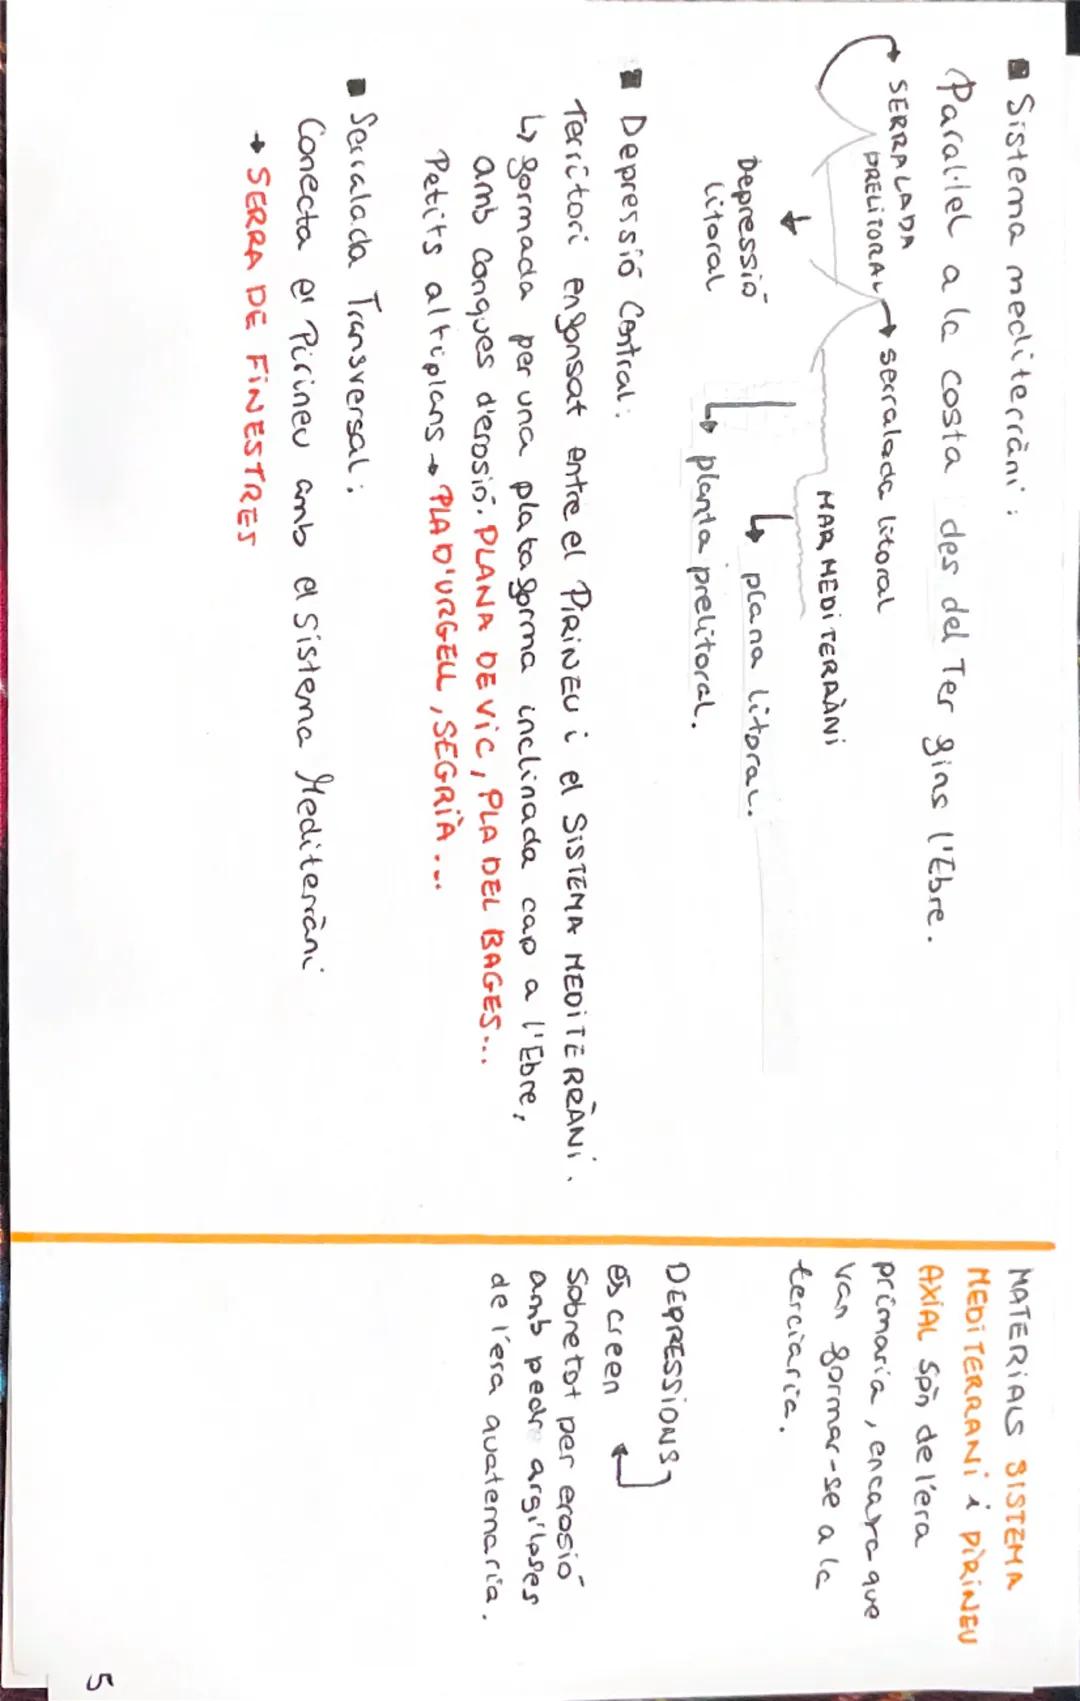 ▪ Sistema mediterràni:
Paral·lel a la costa des del Ter fins l'Ebre.
SERRALADA
PRELITORAL
→ serralada litoral
MAR MEDITERRÀNI
↓
Depressió
litoral
↳ plana litoral.
↳ planta prelitoral.
▪ Depressió Central:
Territori enfonsat entre el PIRINEU i el SISTEMA MEDITERRÀNI.
↳ formada per una plataforma inclinada cap a l'Ebre,
amb conques d'erosió. PLANA DE VIC, PLA DEL BAGES...
Petits altiplans → PLA D'URGELL, SEGRIÀ...
▪ Serralada Transversal:
Conecta el Pirineu amb el sistema Mediterràni
→ SERRA DE FINESTRES
MATERIALS SISTEMA
MEDITERRANI i PIRINEU
AXIAL són de l'era
primaria, encara que
van formar-se a la
terciaria.
DEPRESSIONS
es creen
Sobretot per erosió
amb pedr argiloses
de l'era quaternaria.
5